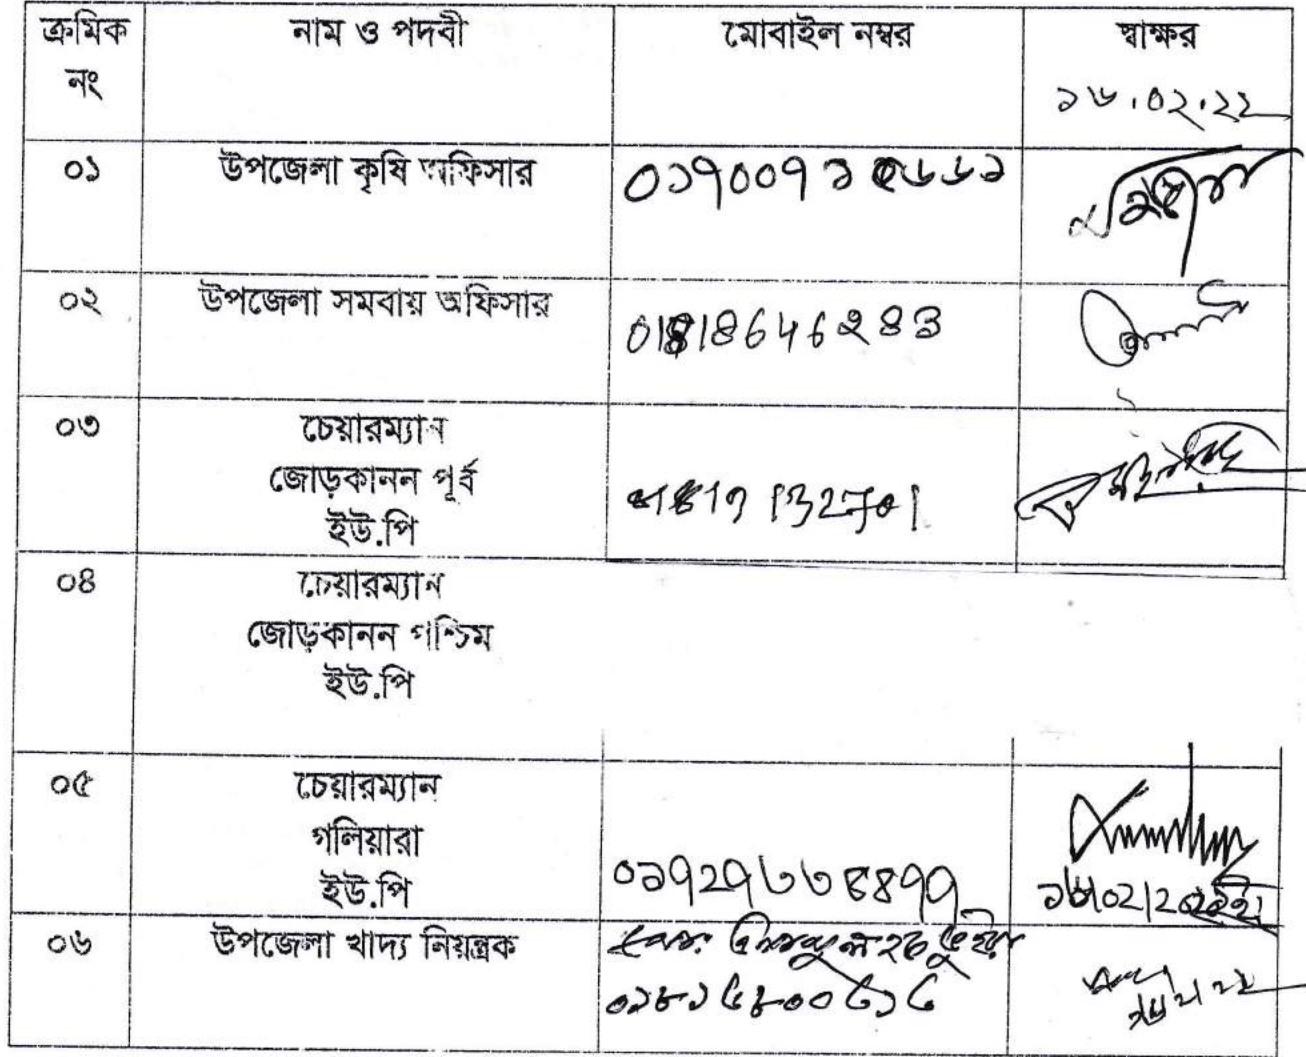 ক্রমিক নং নাম ও পদবী মোবাইল নম্বর স্বাক্ষর
১৬.০২.২২
০১ উপজেলা কৃষি অফিসার
০২ উপজেলা সমবায় অফিসার 01818646283
০৩ চেয়ারম্যান
জোড়কানন পূর্ব
ইউ.পি 01819132701
০৪ চেয়ারম্যান
জোড়কানন পশ্চিম
ইউ.পি
০৫ চেয়ারম্যান
গলিয়ারা
ইউ.পি
০৬ উপজেলা খাদ্য নিয়ন্ত্রক
০১৮১৫৮০০৫১৫